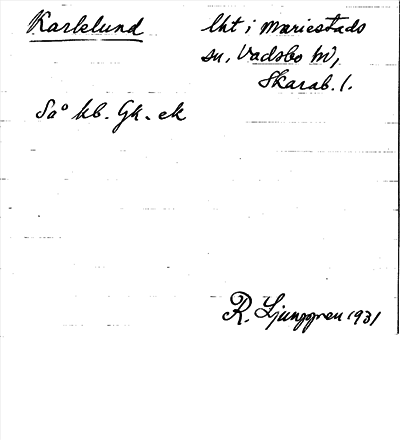 Karlslund
lht i Mariestads
sn, Vadsbo hd,
Skarab. l.
Sa° kb. Gk. ek
R. Ljunggren 1931